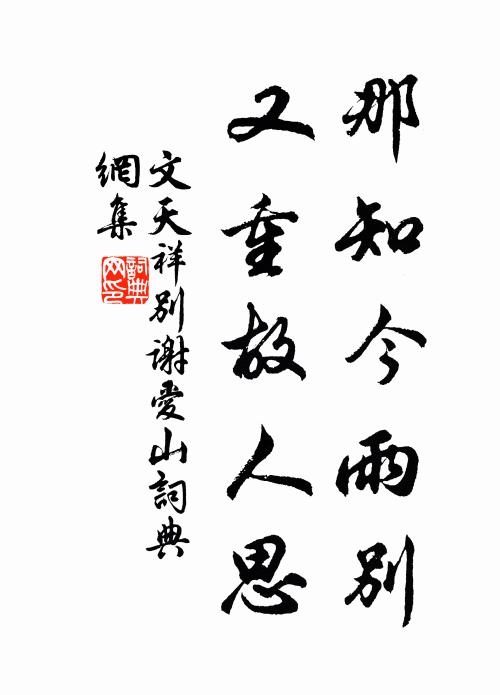 那知今雨别
又重故人思
文天祥别謝愛山詞典
網集
詞典網印